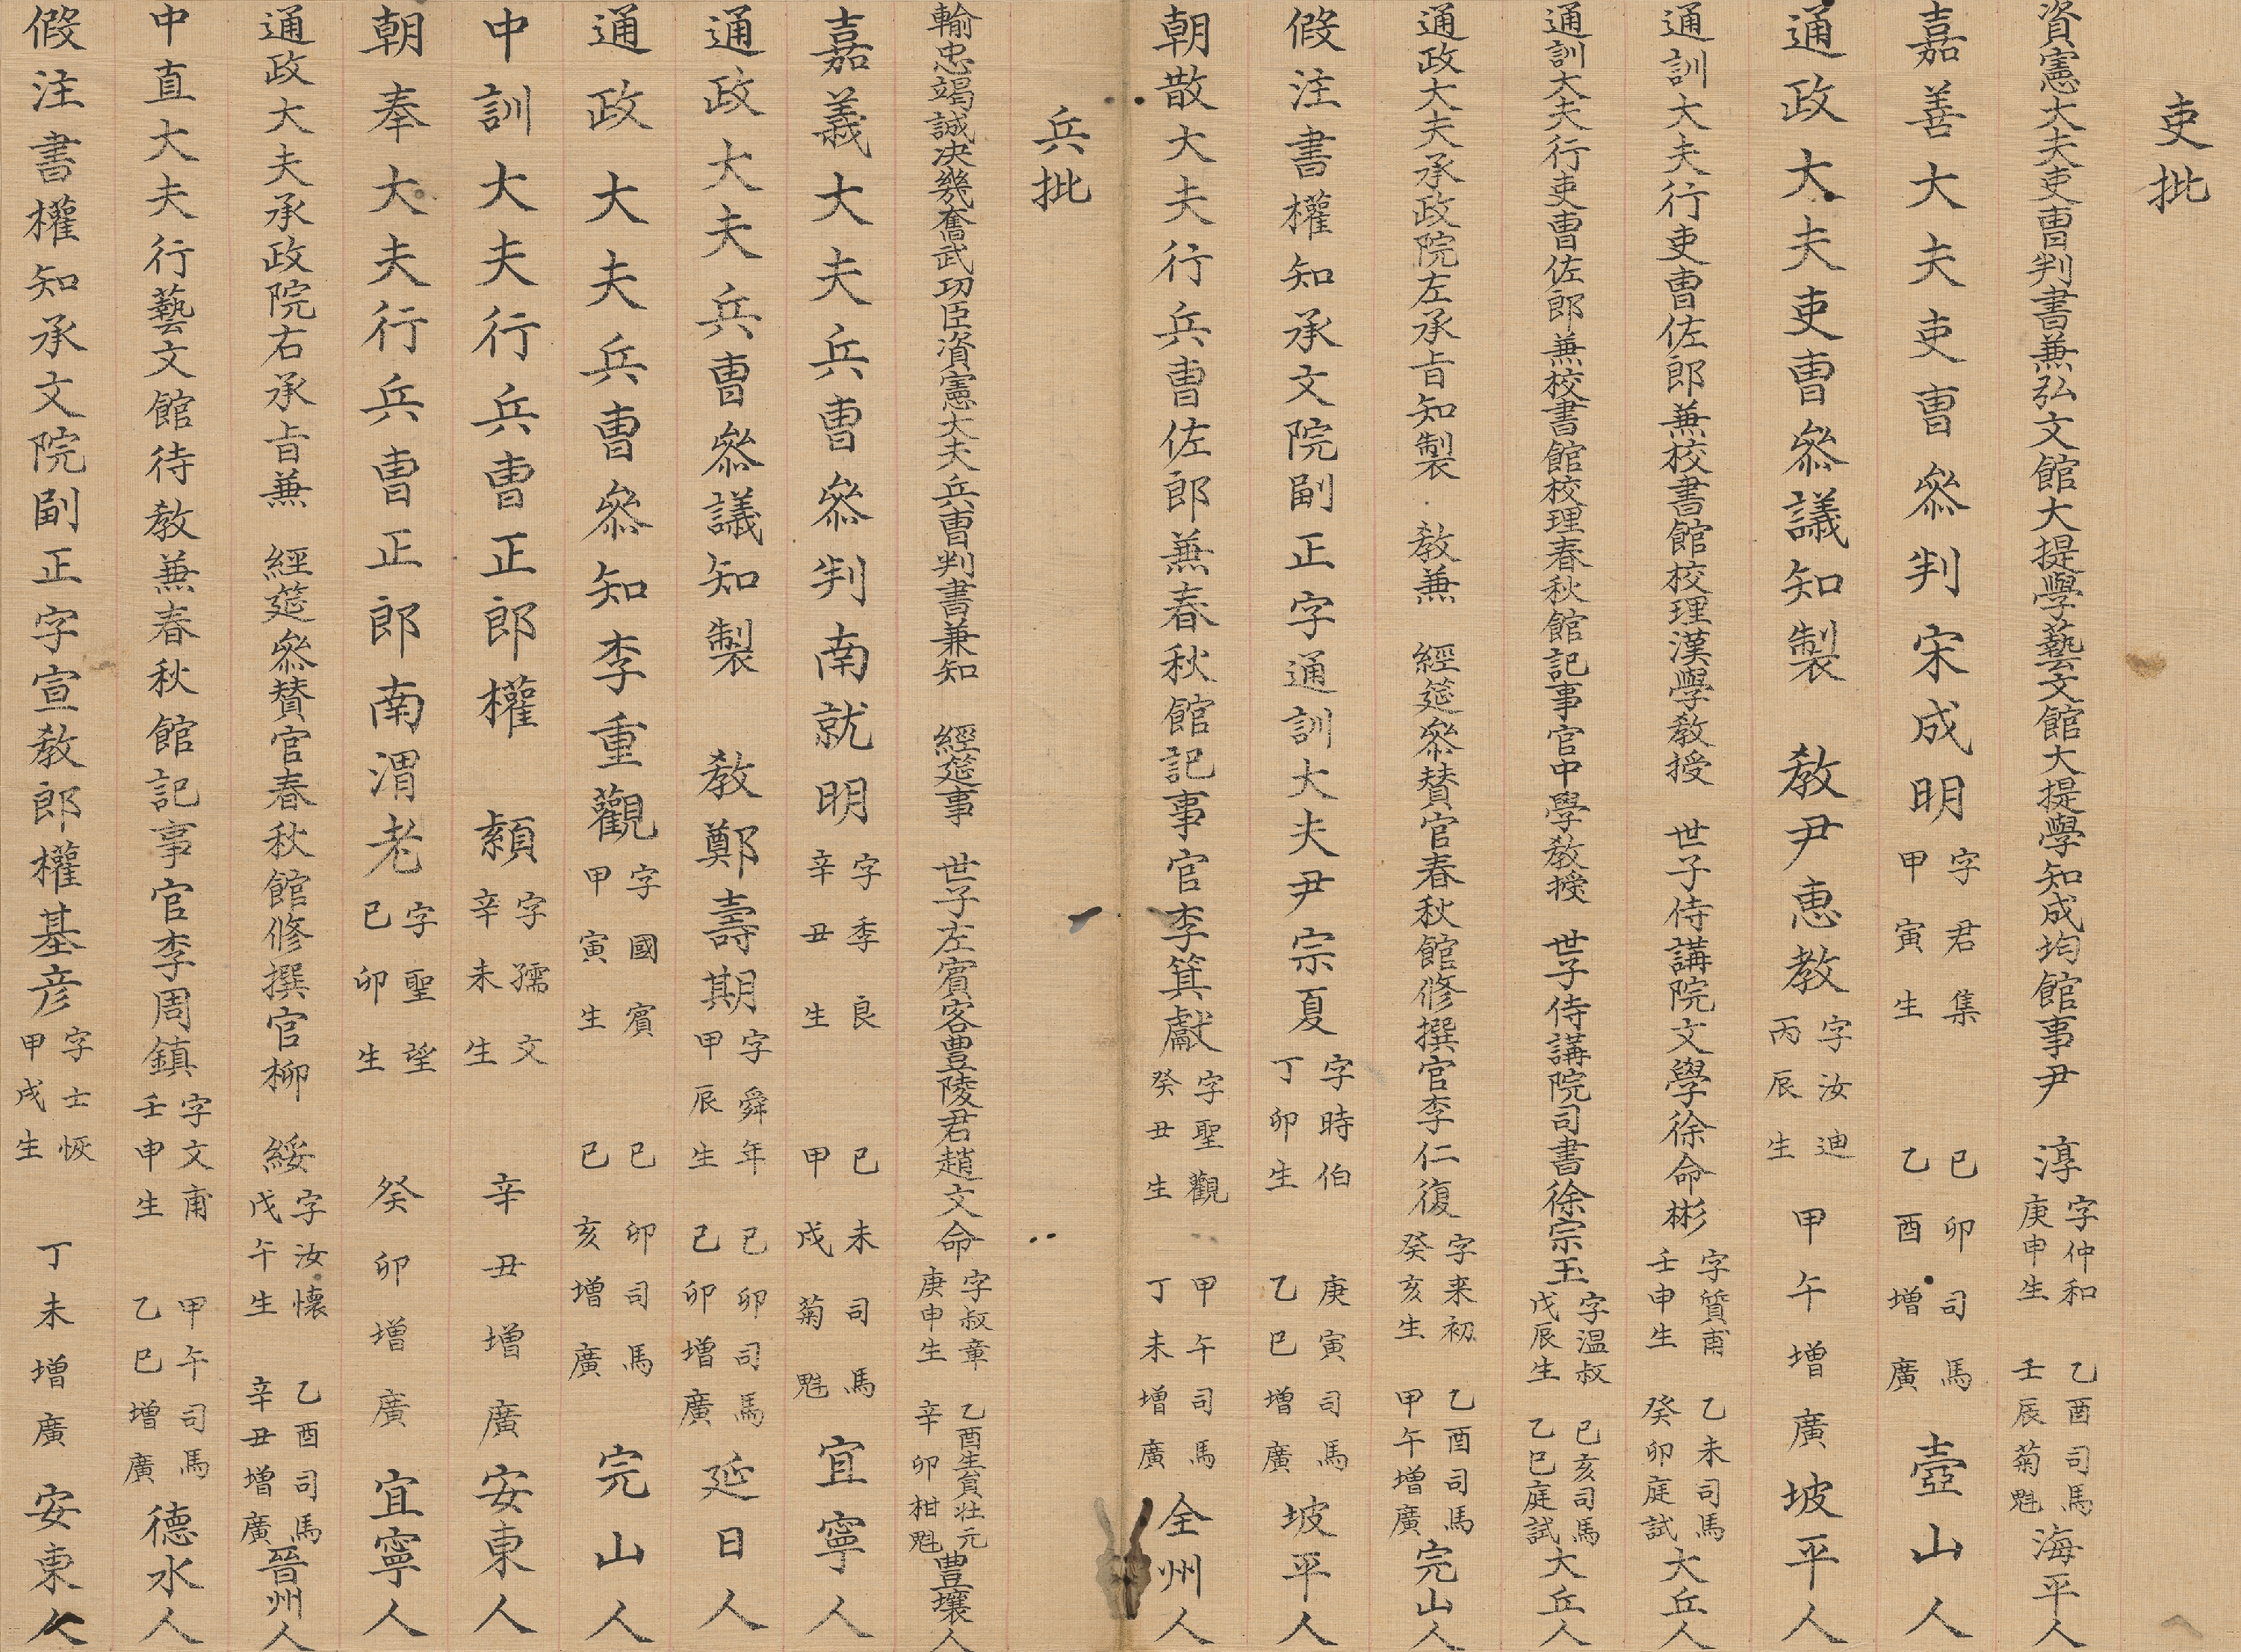 吏批
資憲大夫吏曹判書兼弘文館大提學藝文館大提學知成均館事尹 淳 字仲和 庚申生 乙酉司馬 壬辰菊魁 海平人
嘉善大夫吏曹參判宋成明 字君集 甲寅生 己卯司馬 乙酉增廣 壺山人
通政大夫吏曹參議知製 敎尹惠教 字汝迪 丙辰生 甲午增廣 坡平人
通訓大夫行吏曹佐郎兼校書館校理漢學敎授 世子侍講院文學徐命彬 字質甫 壬申生 乙未司馬 癸卯庭試 大丘人
通訓大夫行吏曹佐郎兼校書館校理春秋館記事官中學敎授 世子侍講院司書徐宗玉 字溫叔 戊辰生 己亥司馬 乙巳庭試 大丘人
通政大夫承政院左承旨知製 敎兼 經筵參贊官春秋館修撰官李仁復 字来初 癸亥生 乙酉司馬 甲午增廣 完山人
假注書權知承文院副正字通訓大夫尹宗夏 字時伯 丁卯生 庚寅司馬 乙巳增廣 坡平人
朝散大夫行兵曹佐郎兼春秋館記事官李箕獻 字聖觀 癸丑生 甲午司馬 丁未增廣 全州人
兵批
輸忠竭誠决幾奮武功臣資憲大夫兵曹判書兼知 經筵事 世子左賓客豊陵君趙文命 字叔章 庚申生 乙酉生貟壮元 辛卯柑魁 豊壤人
嘉義大夫兵曹參判南就明 字季良 辛丑生 己未司馬 甲戌菊魁 宜寧人
通政大夫兵曹參議知製 敎鄭壽期 字舜年 甲辰生 己卯司馬 己卯增廣 延日人
通政大夫兵曹參知李重觀 字國賓 甲寅生 己卯司馬 己亥增廣 完山人
中訓大夫行兵曹正郎權 纇 字孺文 辛未生 辛丑增廣 安東人
朝奉大夫行兵曹正郎南渭老 字聖望 己卯生 癸卯增廣 宜寧人
通政大夫承政院右承旨兼 經筵參贊官春秋館修撰官柳 綏 字汝懷 戊午生 乙酉司馬 辛丑增廣 晉州人
中直大夫行藝文館待敎兼春秋館記事官李周鎮 字文甫 壬申生 甲午司馬 乙巳增廣 德水人
假注書權知承文院副正字宣敎郎權基彦 字士恢 甲戌生 丁未增廣 安東人